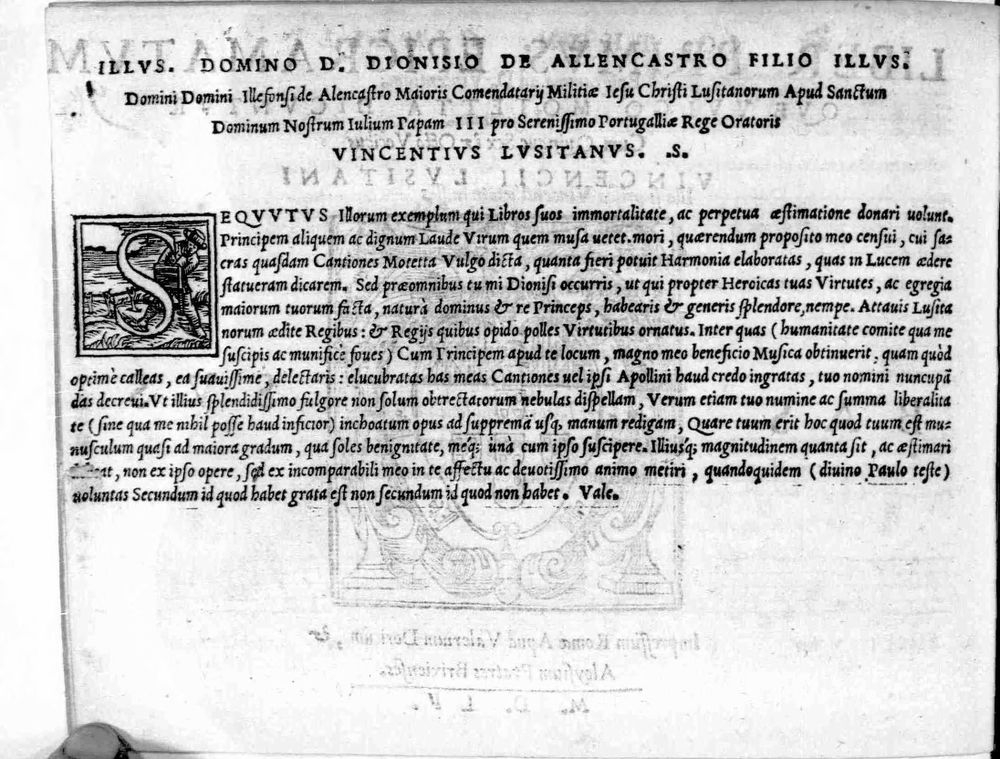 ILLVS. DOMINO D. DIONISIO DE ALLENCASTRO FILIO ILLVS.
Domini Domini Illefonsi de Alencastro Maioris Comendatarij Militiæ Iesu Christi Lusitanorum Apud Sanctum
Dominum Nostrum Iulium Papam III pro Serenissimo Portugalliæ Rege Oratoris
VINCENTIVS LVSITANVS. .S.
SEQVVTVS Illorum exemplum qui Libros suos immortalitate, ac perpetua æstimatione donari uolunt.
Principem aliquem ac dignum Laude Virum quem musa uetet.mori, quærendum proposito meo censui, cui sa-
cras quasdam Cantiones Motetta Vulgo dicta, quanta fieri potuit Harmonia elaboratas, quas in Lucem ædere
statueram dicarem. Sed præomnibus tu mi Dionisi occurris, ut qui propter Heroicas tuas Virtutes, ac egregia
maiorum tuorum facta, naturà dominus & re Princeps, habearis & generis splendore, nempe. Attauis Lusita
norum ædite Regibus: & Regijs quibus opido polles Virtutibus ornatus. Inter quas (humanitate comite qua me
suscipis ac munifice foues) Cum Principem apud te locum, magno meo beneficio Musica obtinuerit, quam quòd
optimè calleas, ea suauissime, delectaris: elucubratas has meas Cantiones uel ipsi Apollini haud credo ingratas, tuo nomini nuncupā
das decreui. Vt illius splendidissimo fulgore non solum obtrectatorum nebulas dispellam, Verum etiam tuo numine ac summa liberalita
te (sine qua me nihil posse haud inficior) inchoatum opus ad supremā usq; manum redigam, Quare tuum erit hoc quod tuum est mu-
nusculum quasi ad maiora gradum, qua soles benignitate, meq; unà cum ipso suscipere. Illiusq; magnitudinem quanta sit, ac æstimari
, non ex ipso opere, sed ex incomparabili meo in te affectu ac deuotissimo animo metiri, quandoquidem (diuino Paulo teste)
uoluntas Secundum id quod habet grata est non secundum id quod non habet. Vale.